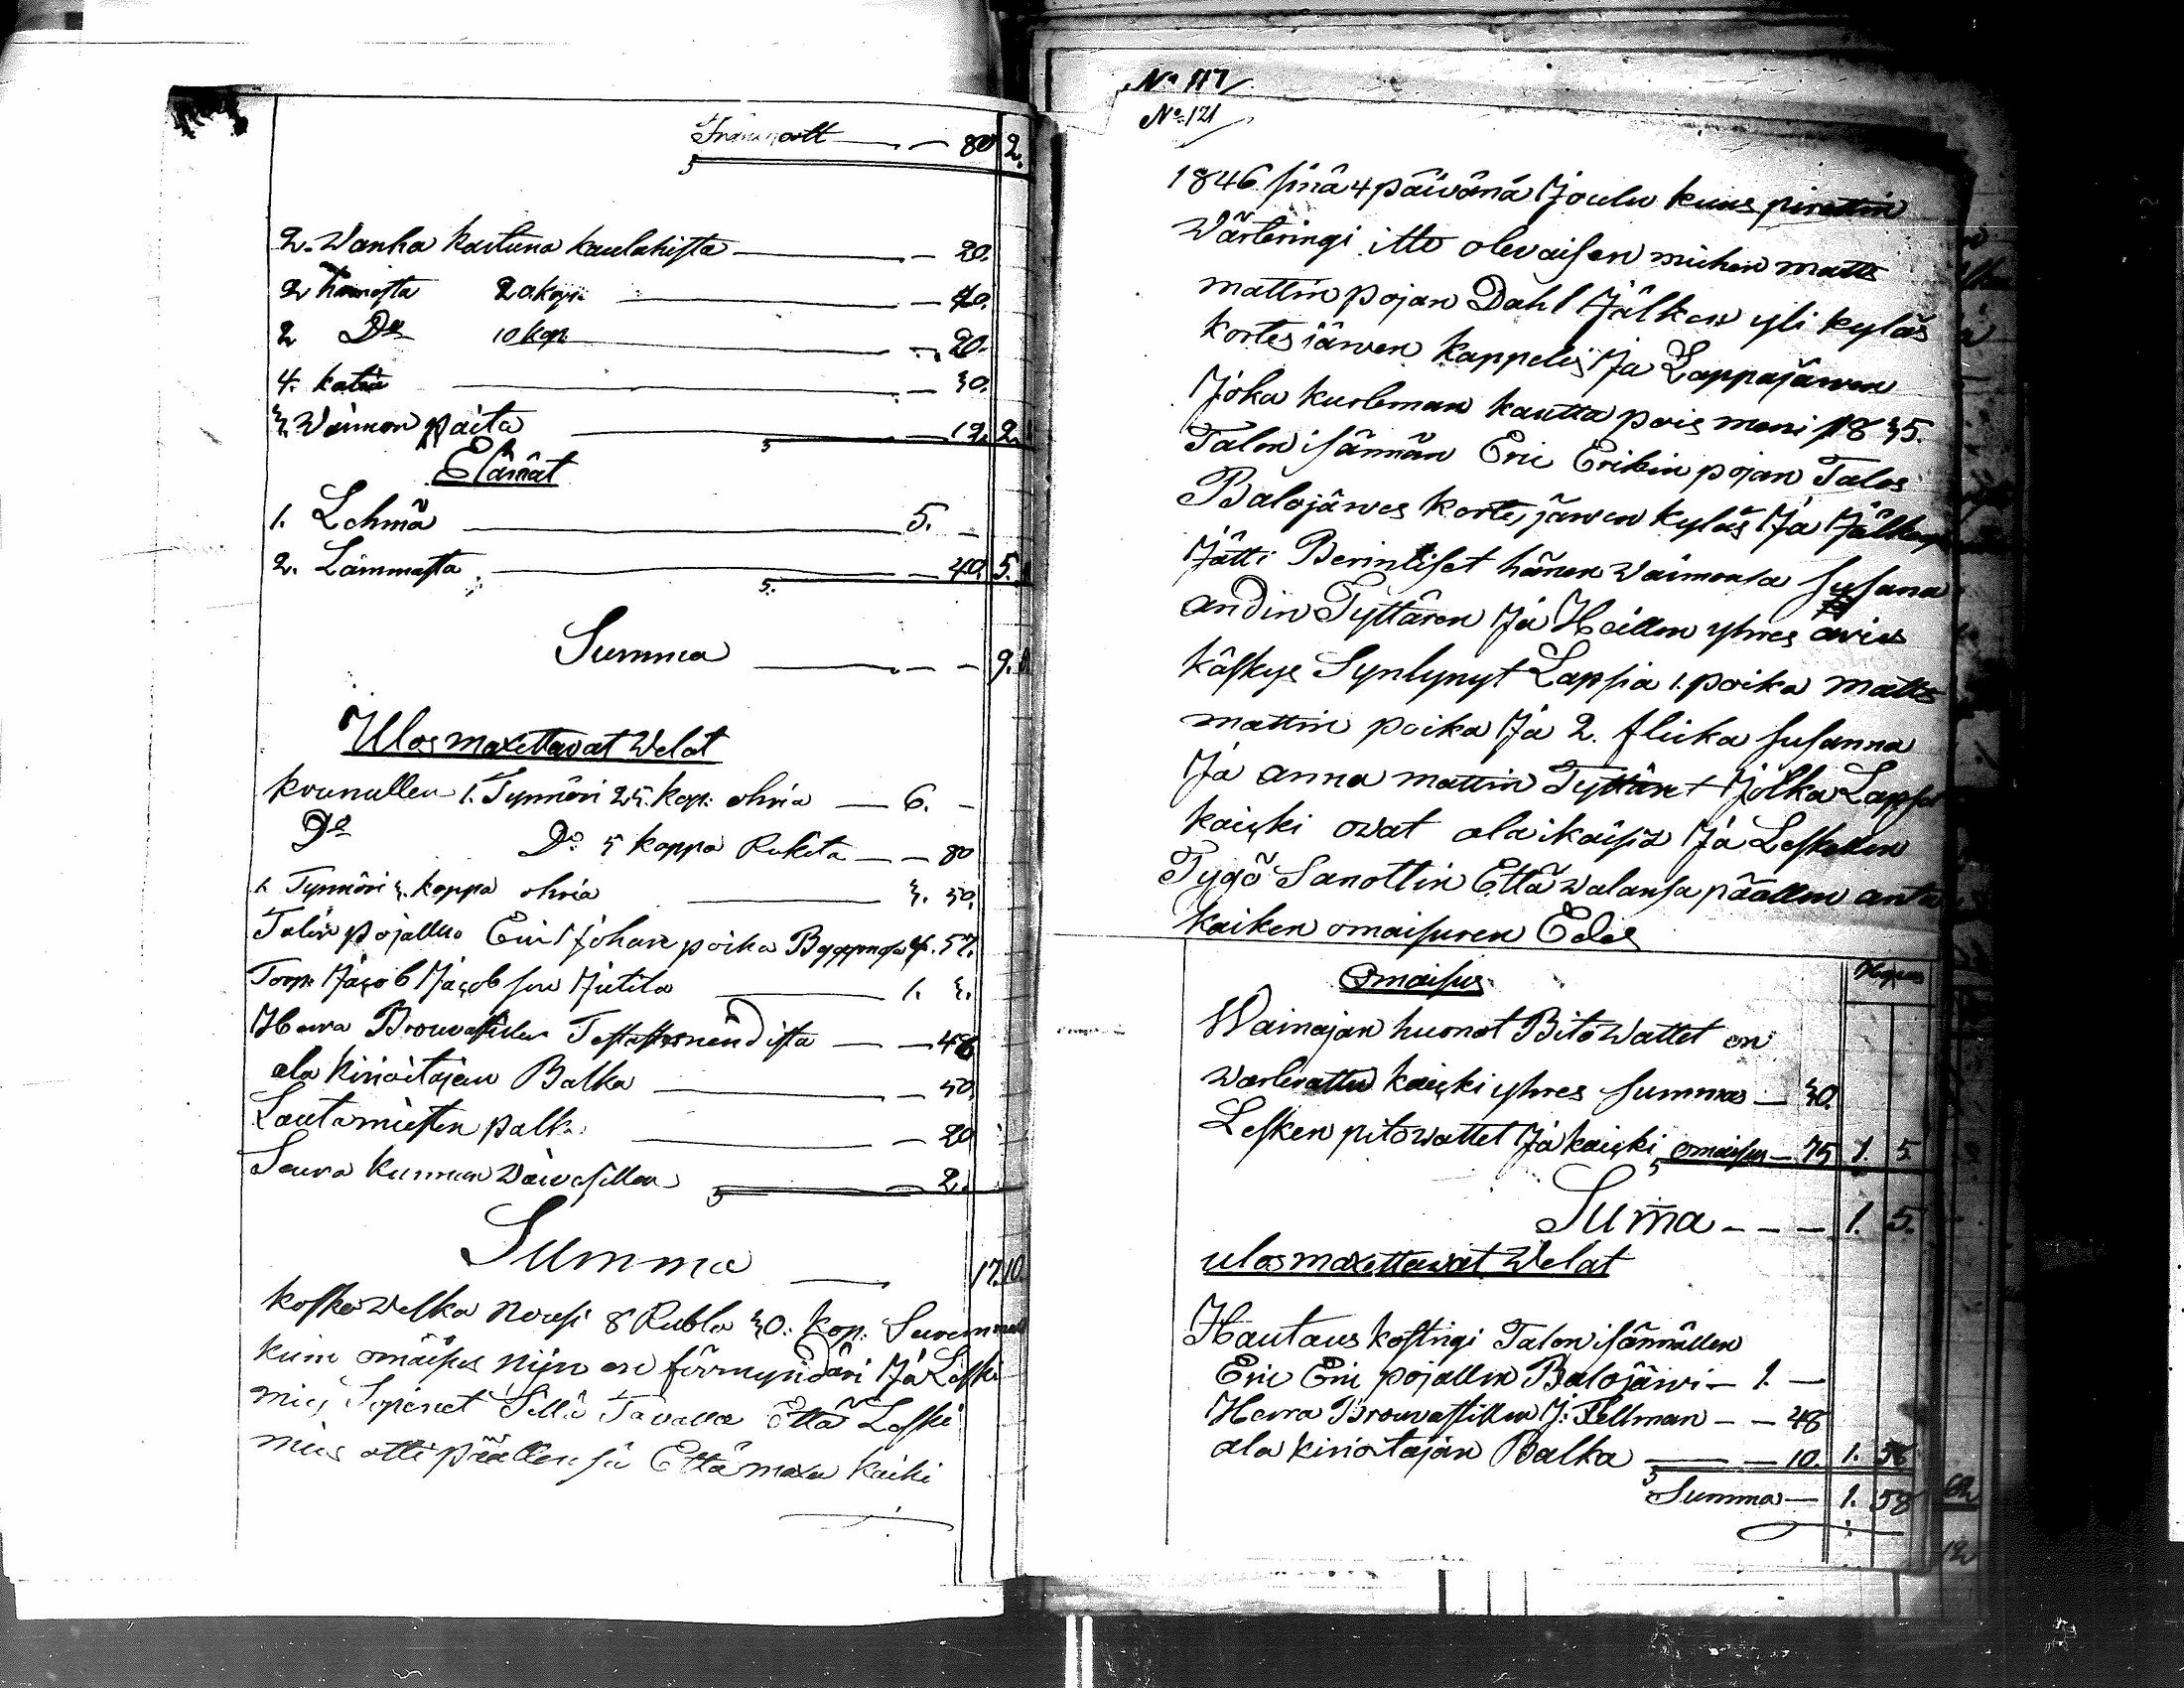 Transportt — — 80 2.
2. Wanha kartuna kaulahista — — 20.
2 hamesta 20 kop — — 40.
2 Do 10 kop — — 20.
4. — — 30.
3. Waimon paita — — 12. 2.
Elämät
1. Lehmä — 5. —
2. Lammasta — — 40. 5.
Summa — — — 9.
Ulos maxettavat Welat
krunullen 1. Tynnöri 25. kop: ohria — 6. —
Do Do 5 kappa Rukita — — 80
1. Tynnöri 3. kappa ohria — 3. 50.
Talon pojallen Eric Johan poika 4. 57.
Torp: Jacob Jacob son Jutila — 1. 3.
Herra Brouvastillen — — 48
ala kirioitajan Balka — — 50.
Lautamiesten palk: — — 20
Seura kunnan Waivasillen — — 2.
Summa — 17. 10.
koska Welka nousi 8 Rubla 30. kop: Suremmall
kuin omaisus nijn on förmyndäri Ja Leski
mies Sopinet Sillä Tavalla Että Leski
mies otti päällensä Että maxa kaiki
No 117
No 121
1846 sinä 4 päivänä Joulu kuus pirettin
Wärteringi itto olevaisen miehen matts
mattin pojan Dahl Jälken yli kyläs
kortesjärwen kappelis Ja Lappajärwen
Joka kuoleman kautta pois meni 1835.
Talon isännän Eric Erikin pojan Talos
Balojärwes kortesjärwen kyläs Ja Jälken
Jätti Perintiset hänen Waimonsa Susana
andin Tyttären Ja Heillen yhres avios
käskys Syntynyt Lapsia 1. poika matts
mattin poika Ja 2. flicka Susanna
Ja anna mattin Tyttäret Jotka Lapset
kaicki owat ala ikaisia Ja Leskellen
Tygö Sanottin Että walansa päällen anta
kaiken omaisuren Edes
Omaisus
Wainajan huonot Bito Wattet on
warlerattu kaicki yhres Summas — 30.
Lesken pito wattet Ja kaicki omaisus — 75 1. 5
Suma — — — 1. 5.
ulos maxettawat Welat
Hautaus kostingi Talon isännällen
Eric Eric pojallen Balojärwi — 1. —
Herra Brouvastillen J: Fellman — — 48
ala kirioitajan Balka — — 10. 1. 58
Summa — 1. 58